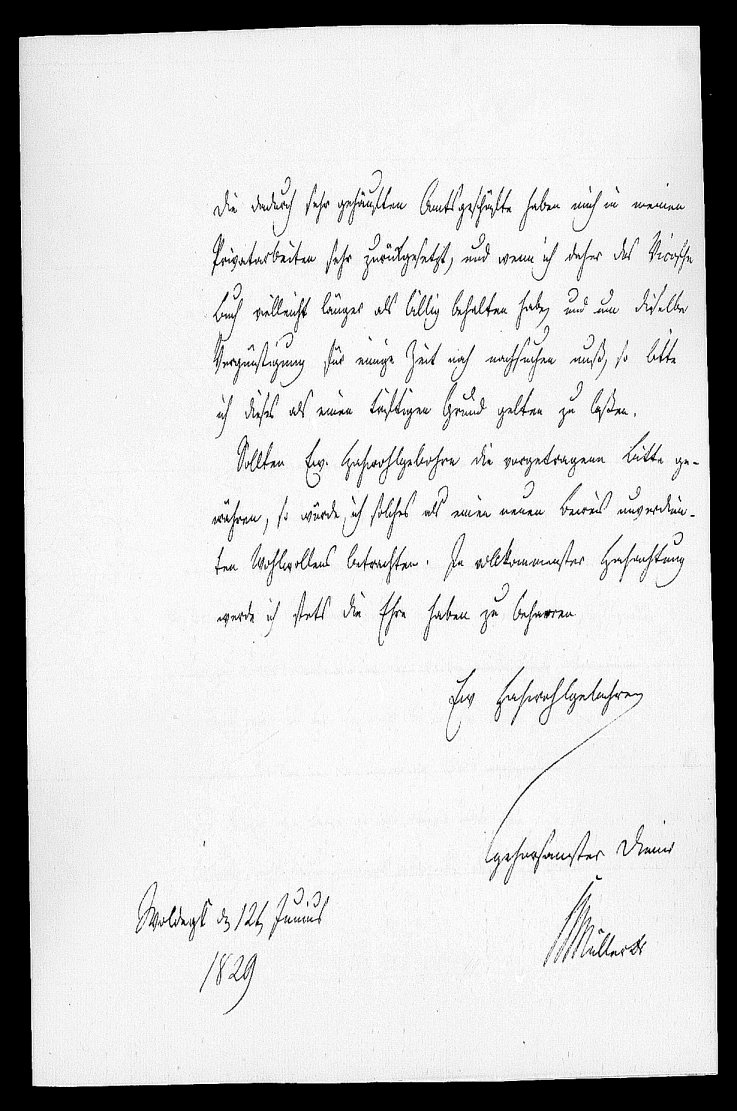 die dadurch sehr gehäuften Amtsgeschäfte haben mich in meinen
Privatarbeiten sehr zurückgesetzt, und wenn ich daher das
Buch vielleicht länger als billig behalten habe, und um dieselbe
Vergünstigung für einige Zeit noch nachsuchen muß, so bitte
ich dieses als einen triftigen Grund gelten zu laßen.
Sollten Ew. Hochwohlgebohrn die vorgetragene Bitte ge-
währen, so würde ich solches als einen neuen Beweis unverdien-
ten Wohlwollens betrachten. In vollkommenster Hochachtung
werde ich stets die Ehre haben zu beharren
Ew Hochwohlgebohren
gehorsamster Diener
Woldegk d 12t Junius
Müller
1829